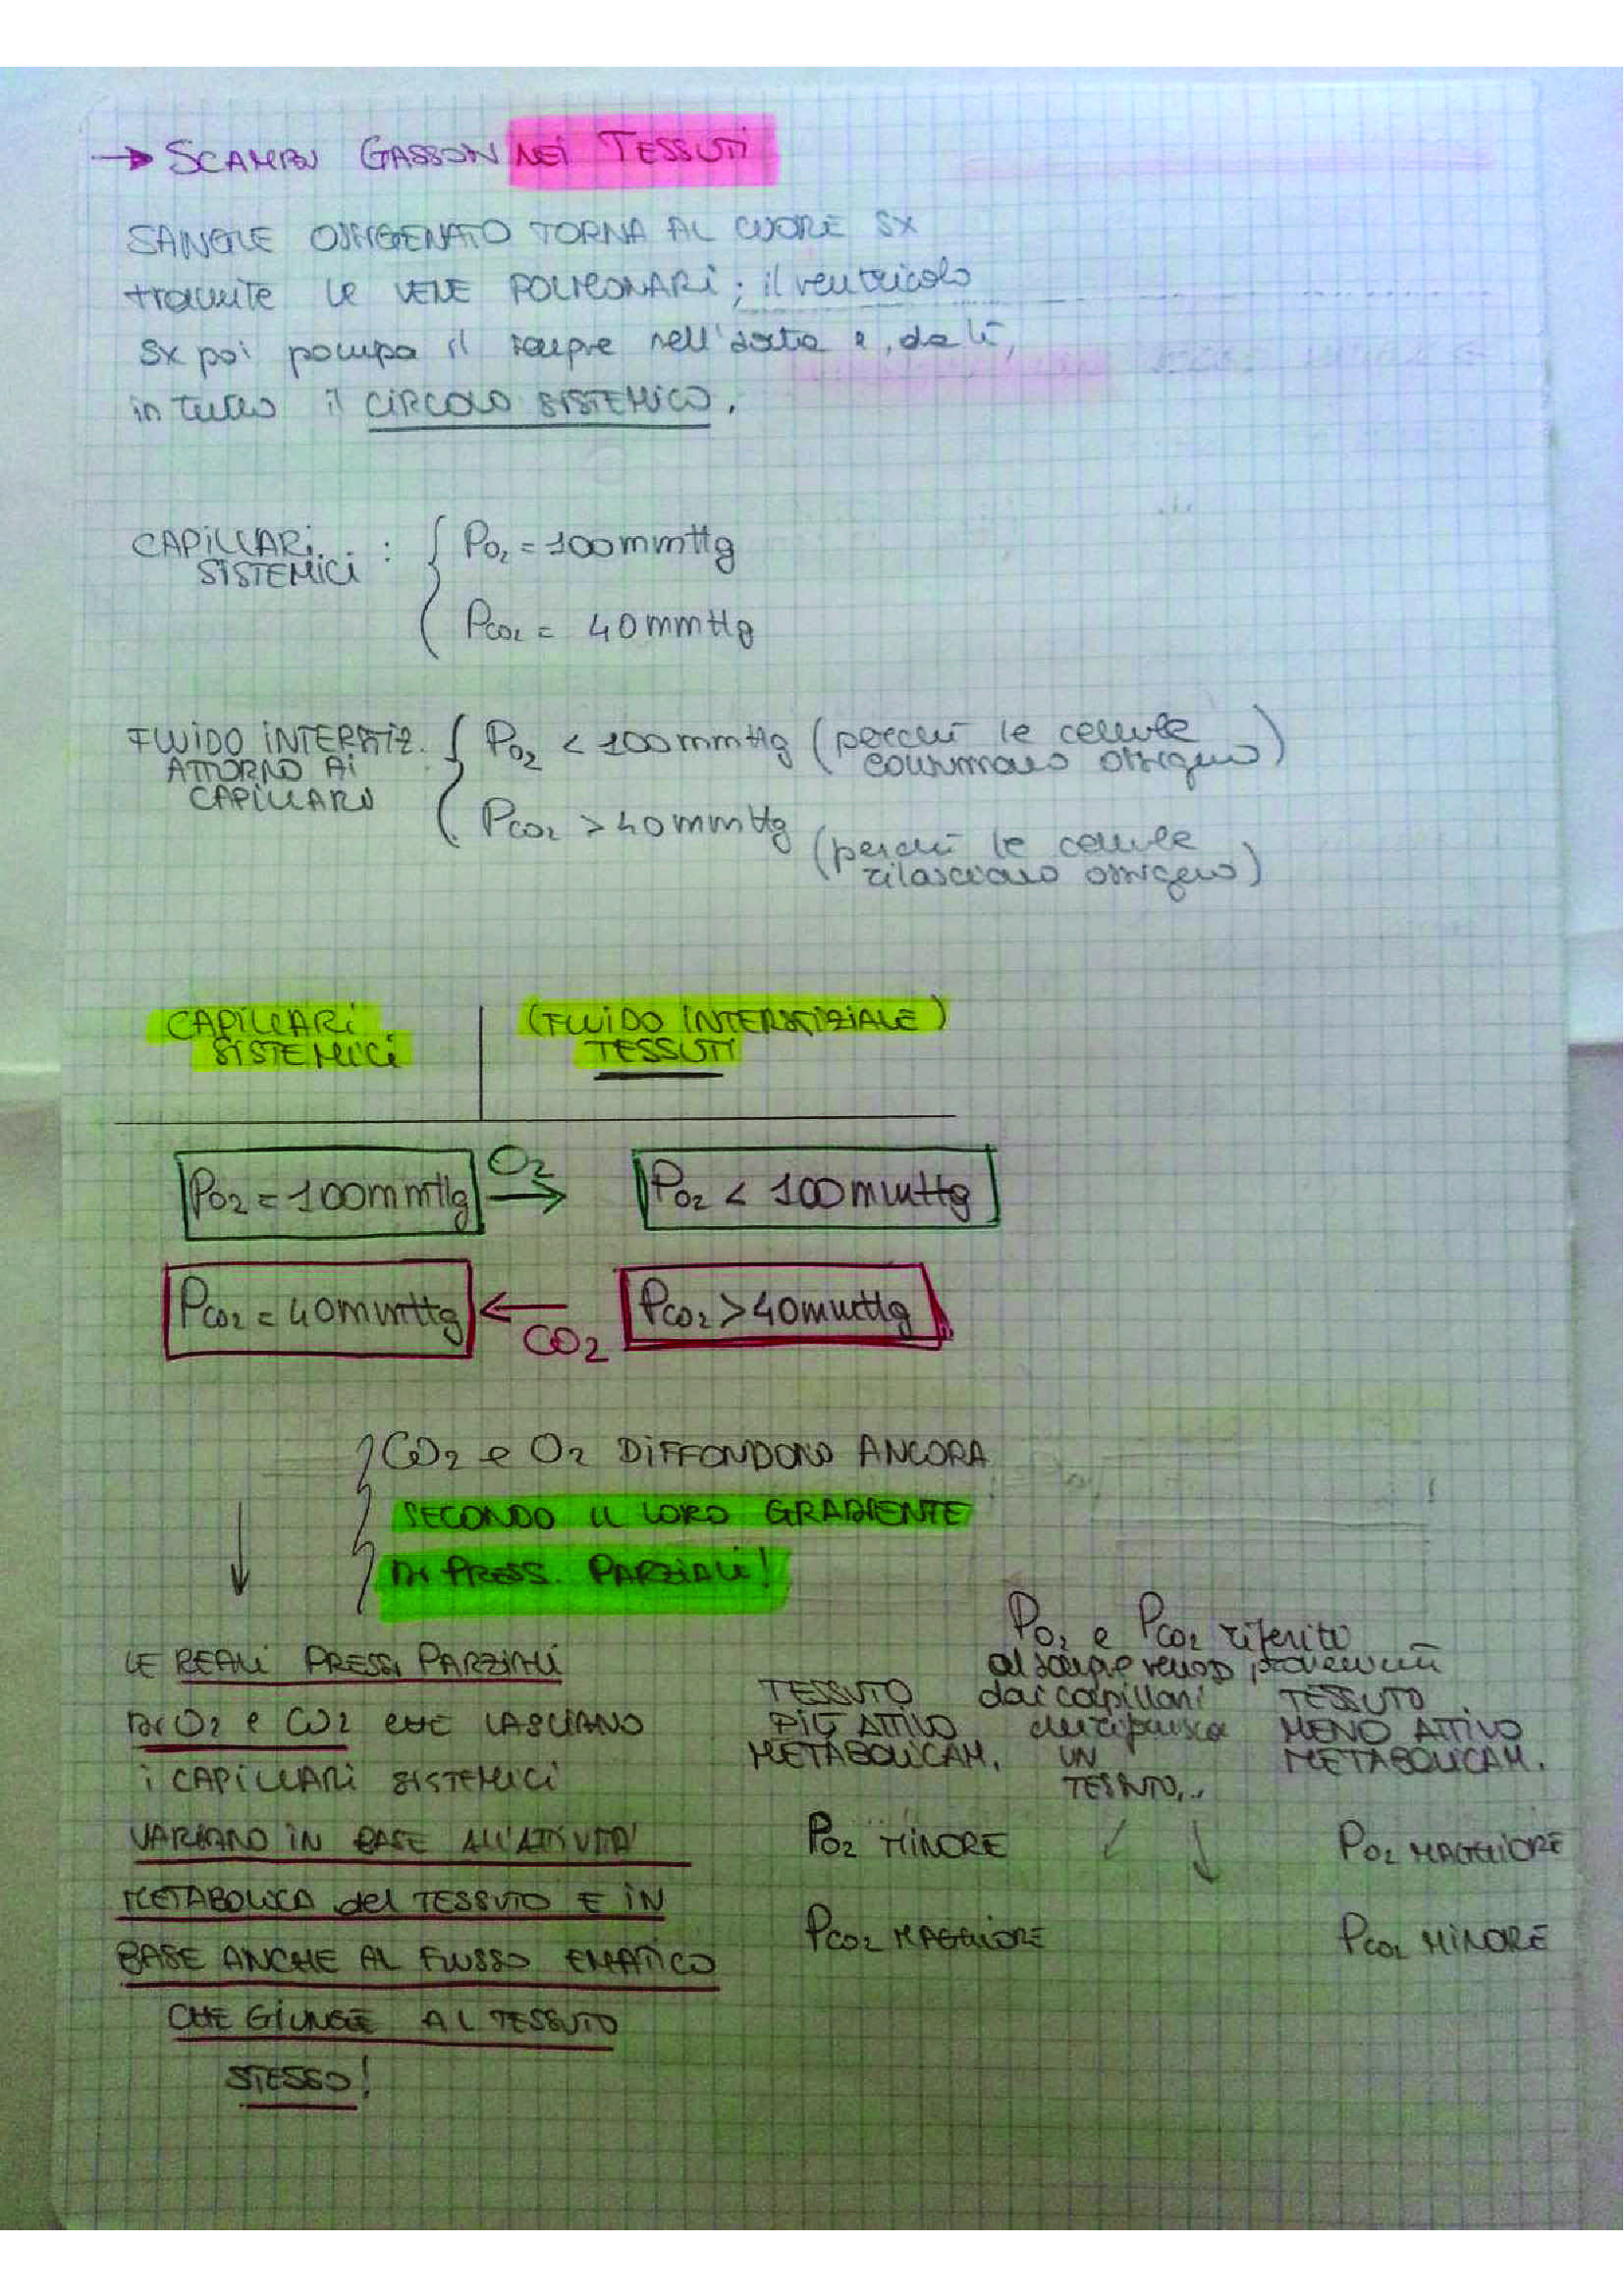 → SCAMBI GASSOSI NEI TESSUTI
SANGUE OSSIGENATO TORNA AL CUORE SX
tramite le VENE POLMONARI; il ventricolo
sx poi pompa il sangue nell'aorta e, da lì,
in tutto il CIRCOLO SISTEMICO.
CAPILLARI
SISTEMICI :
PO2 = 100mmHg
PCO2 = 40mmHg
FLUIDO INTERSTIZ.
ATTORNO AI
CAPILLARI
PO2 < 100mmHg (perché le cellule
consumano ossigeno)
PCO2 > 40mmHg (perché le cellule
rilasciano ossigeno)
CAPILLARI
SISTEMICI
(FLUIDO INTERSTIZIALE)
TESSUTI
PO2 = 100mmHg
O2 →
PO2 < 100mmHg
PCO2 = 40mmHg
← CO2
PCO2 > 40mmHg
CO2 e O2 DIFFONDONO ANCORA
SECONDO IL LORO GRADIENTE
DI PRESS. PARZIALI!
LE REALI PRESS. PARZIALI
DI O2 e CO2 CHE LASCIANO
i CAPILLARI SISTEMICI
VARIANO IN BASE ALL'ATTIVITA'
METABOLICA del TESSUTO E IN
BASE ANCHE AL FLUSSO EMATICO
CHE GIUNGE AL TESSUTO
STESSO!
PO2 e PCO2 riferite
al sangue venoso proveniente
dai capillari
UN
TESSUTO...
TESSUTO
PIÙ ATTIVO
METABOLICAM.
PO2 MINORE
PCO2 MAGGIORE
TESSUTO
MENO ATTIVO
METABOLICAM.
PO2 MAGGIORE
PCO2 MINORE